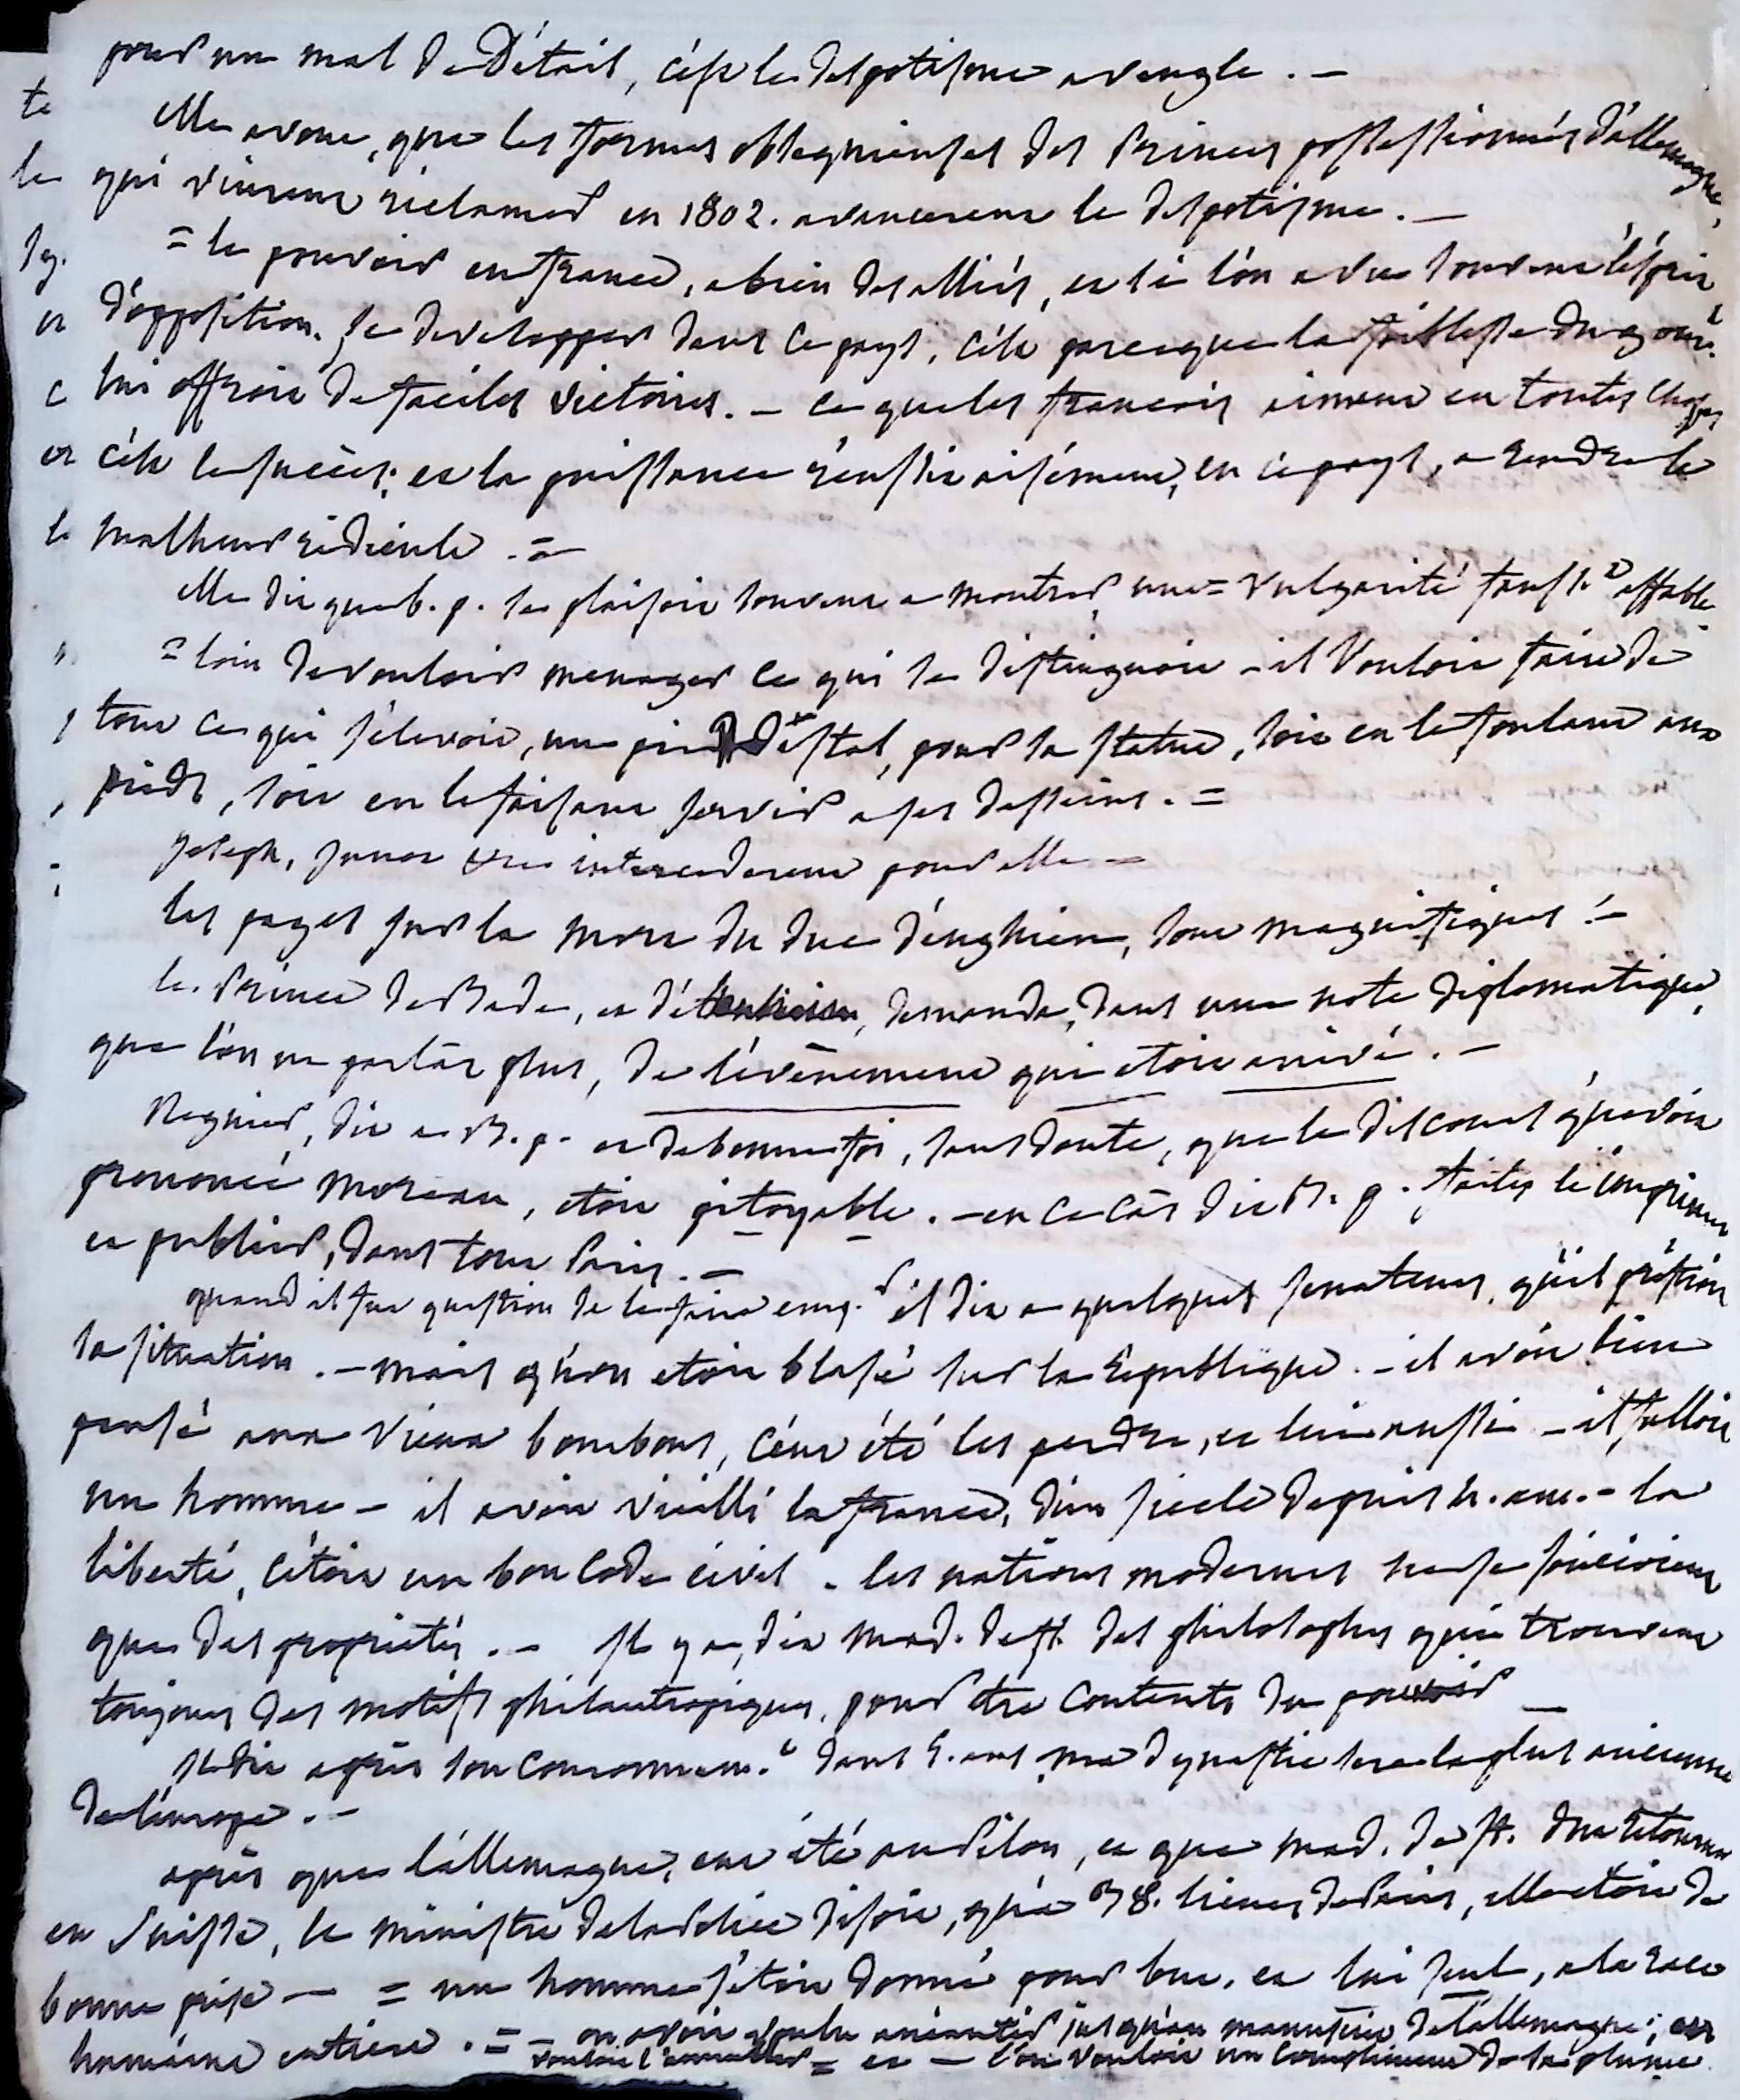 pour un mal de Détail, c'est le despotisme aveugle. —
elle avoue, que les formes obsequieuses des Princes possessionnés d'allemagne,
qui vinrent réclamer en 1802. avancerent le despotisme. —
= le pouvoir en france, a bien des alliés, et si l'on a vu souvent l'esprit
d'opposition se developper dans ce pays, c'est parceque la faiblesse du gouvt.
lui offroit de faciles victoires. — ce que les francois aiment en toutes choses
c'est le succès; et la puissance réussit aisément, en ce pays, a rendre le
malheur ridicule. =
elle dit que b. p. se plaisoit souvent a montrer une = vulgarité
= loin de vouloir menager ce qui se distinguoit — il vouloit faire de
tout ce qui s'élevoit, un piédestal, pour sa statue, soit en le foulant aux
pieds, soit en le faisant servir a ses desseins. =
Joseph, Junot &c intercederent pour elle —
les pages sur la mort du duc d'enghien, sont magnifiques ! —
le Prince de Bade, demanda, dans une note diplomatique,
que l'on ne parlât plus, de l'évènement qui etoit arrivé. —
Regnier, dit a B. p. et de bonne foi, sans doute, que le discours qu'avoit
prononcé moreau, etoit pitoyable. — en ce cas dit B. p. faites le imprimer
et publier, dans tout Paris. —
quand il fut question de le faire emp.r il dit a quelques senateurs, qu'il
sa situation. — mais qu'on etoit blasé sur la république. — il avoit bien
pensé aux vieux bourbons, c'eut été les perdre, et lui aussi — il falloit
un homme — il avoit vieilli la france, d'un siecle depuis 4. ans. — la
liberté, c'étoit un bon code civil. les nations modernes ne se soucioient
que des propriétés. — Il y a, dit mad. de st. des philosophes qui trouvent
toujours des motifs philantropiques, pour etre contents du pouvoir —
Il dit après son couronnem.t dans 5. ans ma dynastie sera la plus ancienne
de l'europe. —
après que l'allemagne, eut été au pilon, et que mad. de st. dut retourner
en Suisse, le ministre de la Police disoit, qu'a 38. lieues de Paris, elle etoit de
bonne prise — = un homme s'étoit donné pour but, et lui seul, a la race
humaine entiere. = — on avoit voulu anéantir jusqu'au manuscrit de l'allemagne;
= et — l'on vouloit un compliment de sa plume.
te
le
et
c
et
le